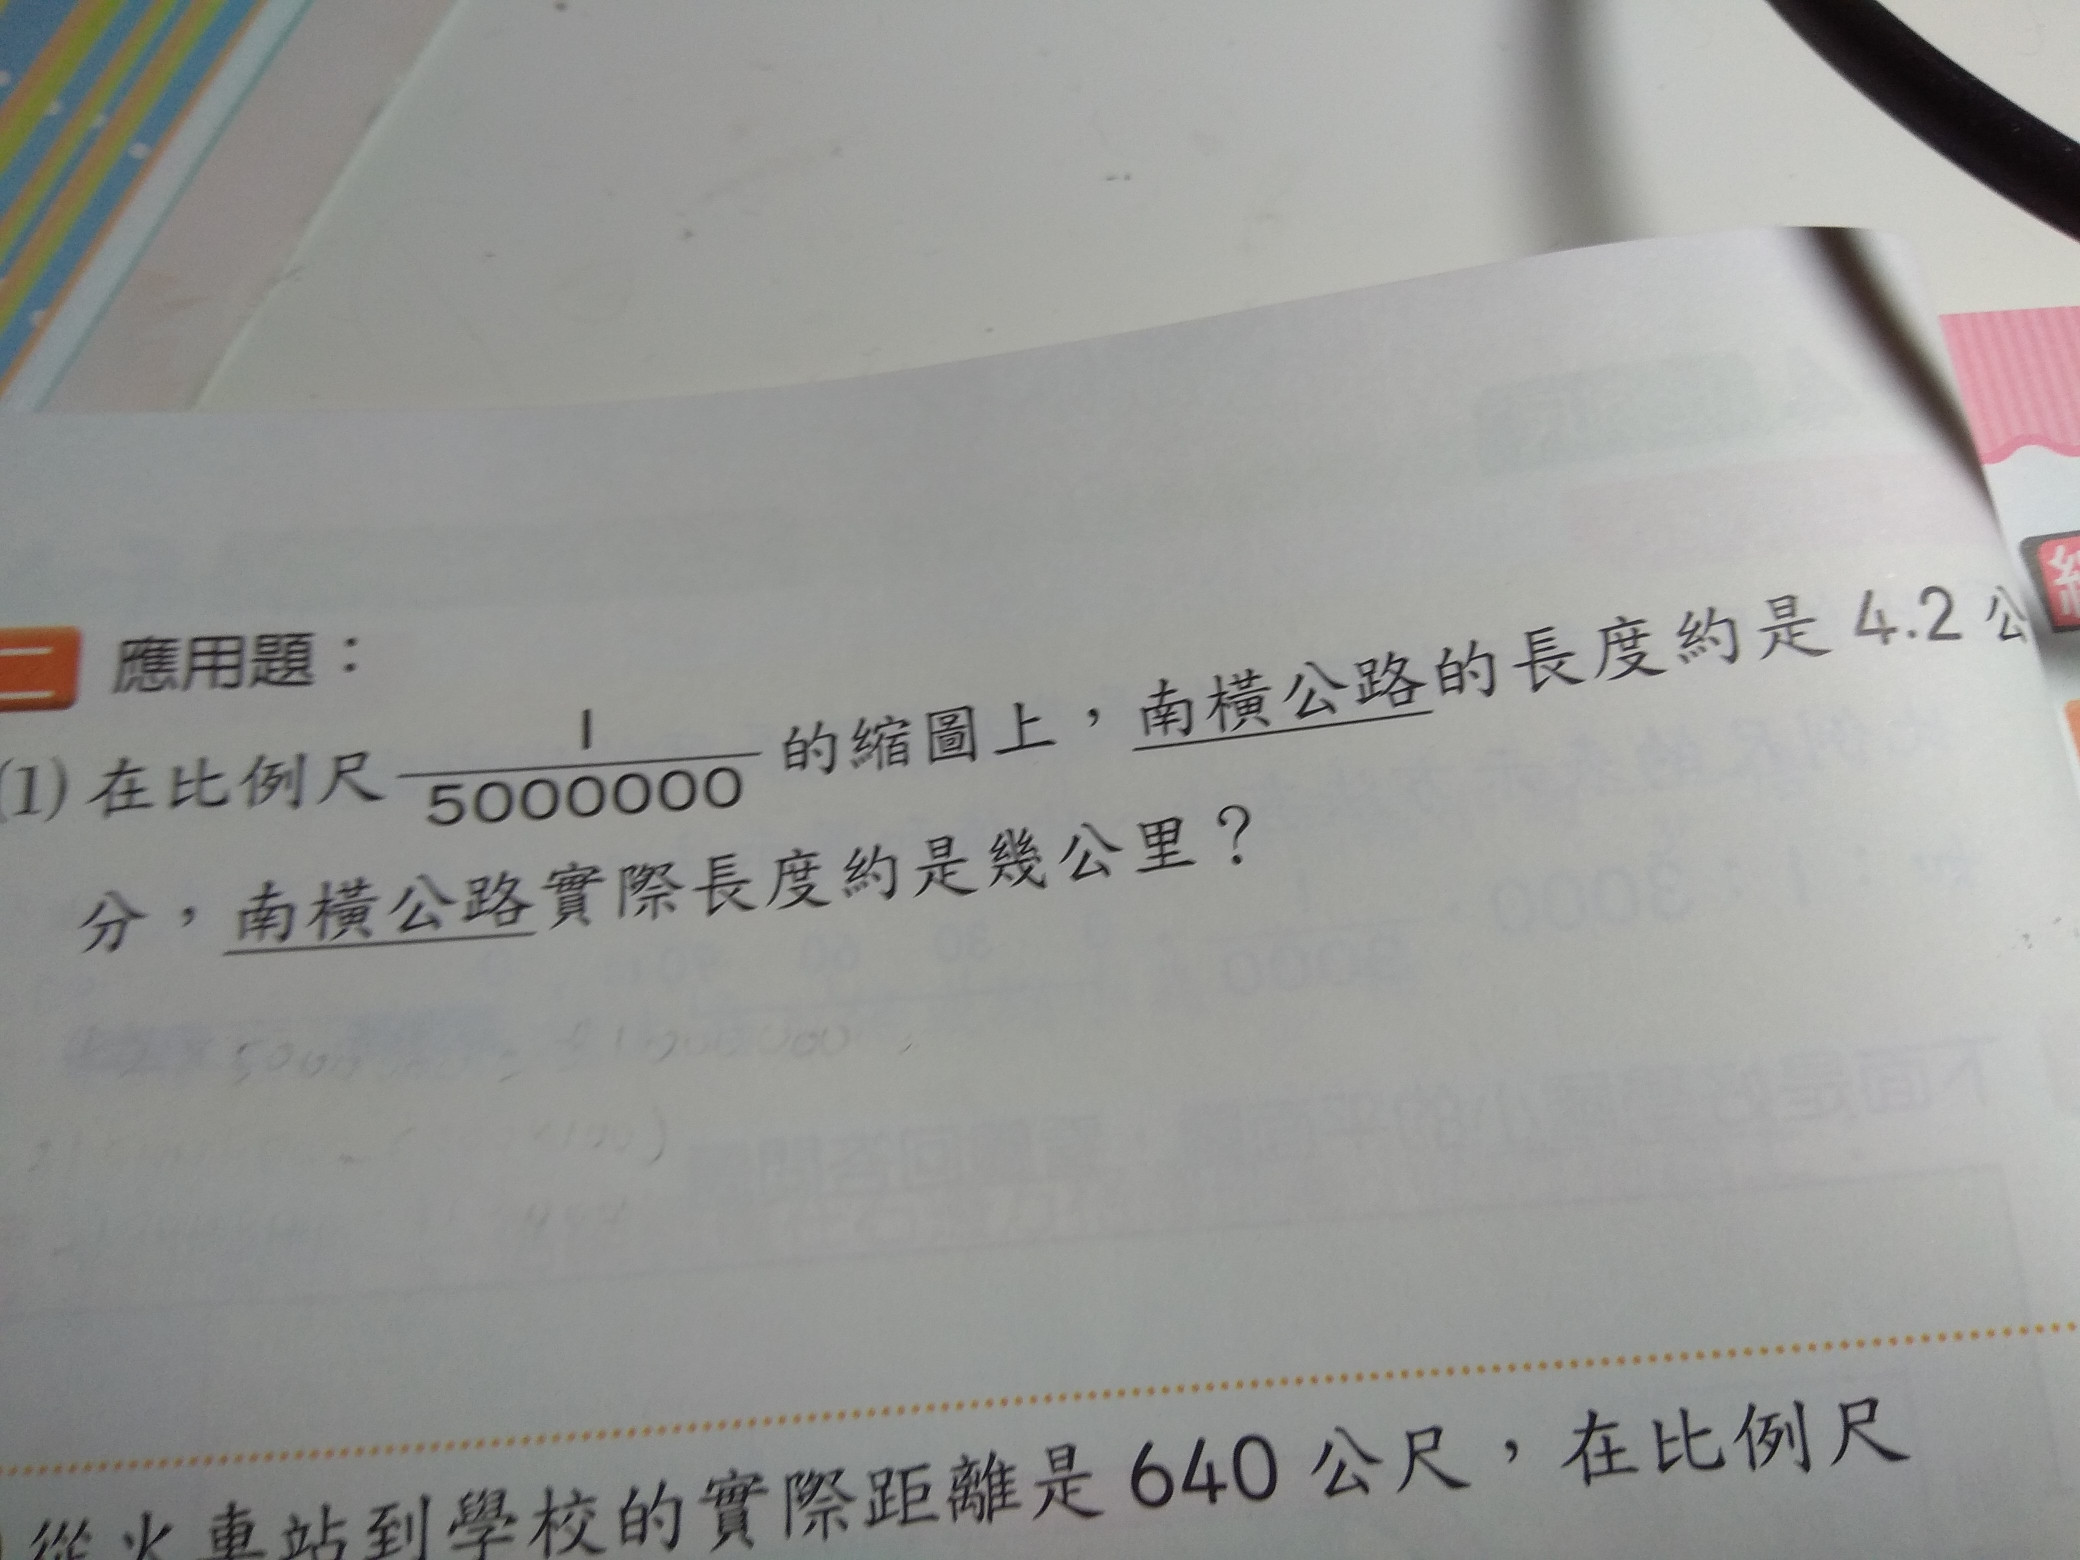 二 應用題：
(1) 在比例尺 1/5000000 的縮圖上，南橫公路的長度約是 4.2 公
分，南橫公路實際長度約是幾公里？
從火車站到學校的實際距離是 640 公尺，在比例尺